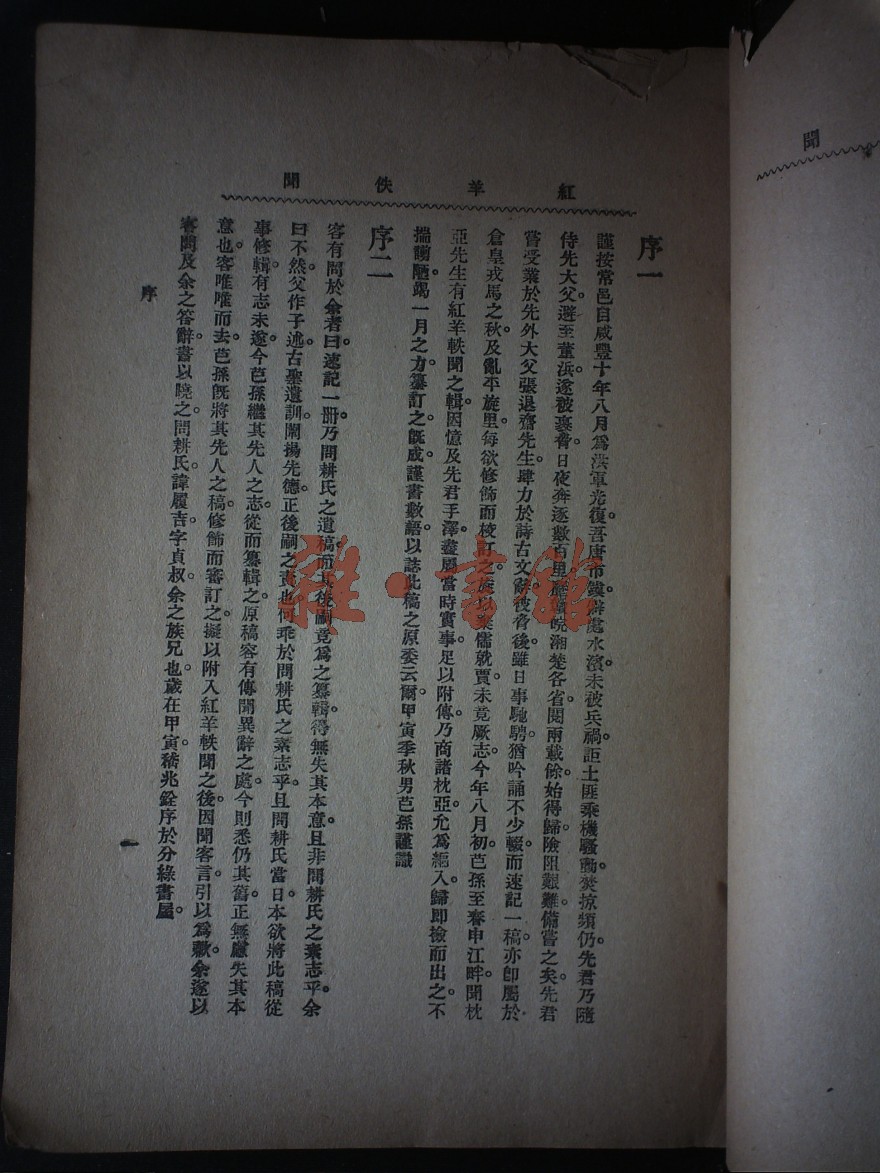 紅羊佚聞
序一
謹按常邑自咸豐十年八月爲洪軍光復。吾唐市鎮僻處水濱。未被兵禍。詎土匪乘機騷動。焚掠頻仍。先君乃隨
侍先大父。避至董浜。遂被裹脅。日夜奔逐數百里。歷皖湘楚各省。閱兩載餘。始得歸。險阻艱難。備嘗之矣。先君
嘗受業於先外大父張退齋先生。肆力於詩古文辭。被脅後。雖日事馳騁。猶吟誦不少輟。而速記一稿。亦卽屬於
倉皇戎馬之秋。及亂平旋里。每欲修飾而校訂之。旋以棄儒就賈。未竟厥志。今年八月初。芑孫至春申江畔。聞枕
亞先生有紅羊軼聞之輯。因憶及先君手澤。盡屬當時實事。足以附傳。乃商諸枕亞。允爲編入。歸卽檢而出之。不
揣謭陋。竭一月之力。纂訂之。旣成。謹書數語。以誌此稿之原委云爾。甲寅季秋男芑孫謹識
序二
客有問於余者曰。速記一册。乃問耕氏之遺稿。而其後嗣竟爲之纂輯。得無失其本意。且非問耕氏之素志乎。余
曰。不然。父作子述。古聖遺訓。闡揚先德。正後嗣之責也。何乖於問耕氏之素志乎。且問耕氏當日。本欲將此稿從
事修輯。有志未逮。今芑孫繼其先人之志。從而纂輯之。原稿容有傳聞異辭之處。今則悉仍其舊。正無慮失其本
意也。客唯唯而去。芑孫旣將其先人之稿。修飾而審訂之。擬以附入紅羊軼聞之後。因聞客言。引以爲歉。余遂以
客問及余之答辭。書以曉之。問耕氏。諱履吉。字貞叔。余之族兄也。歲在甲寅。嵇兆銓序於分綠書屋。
序
一
聞
雜·書館